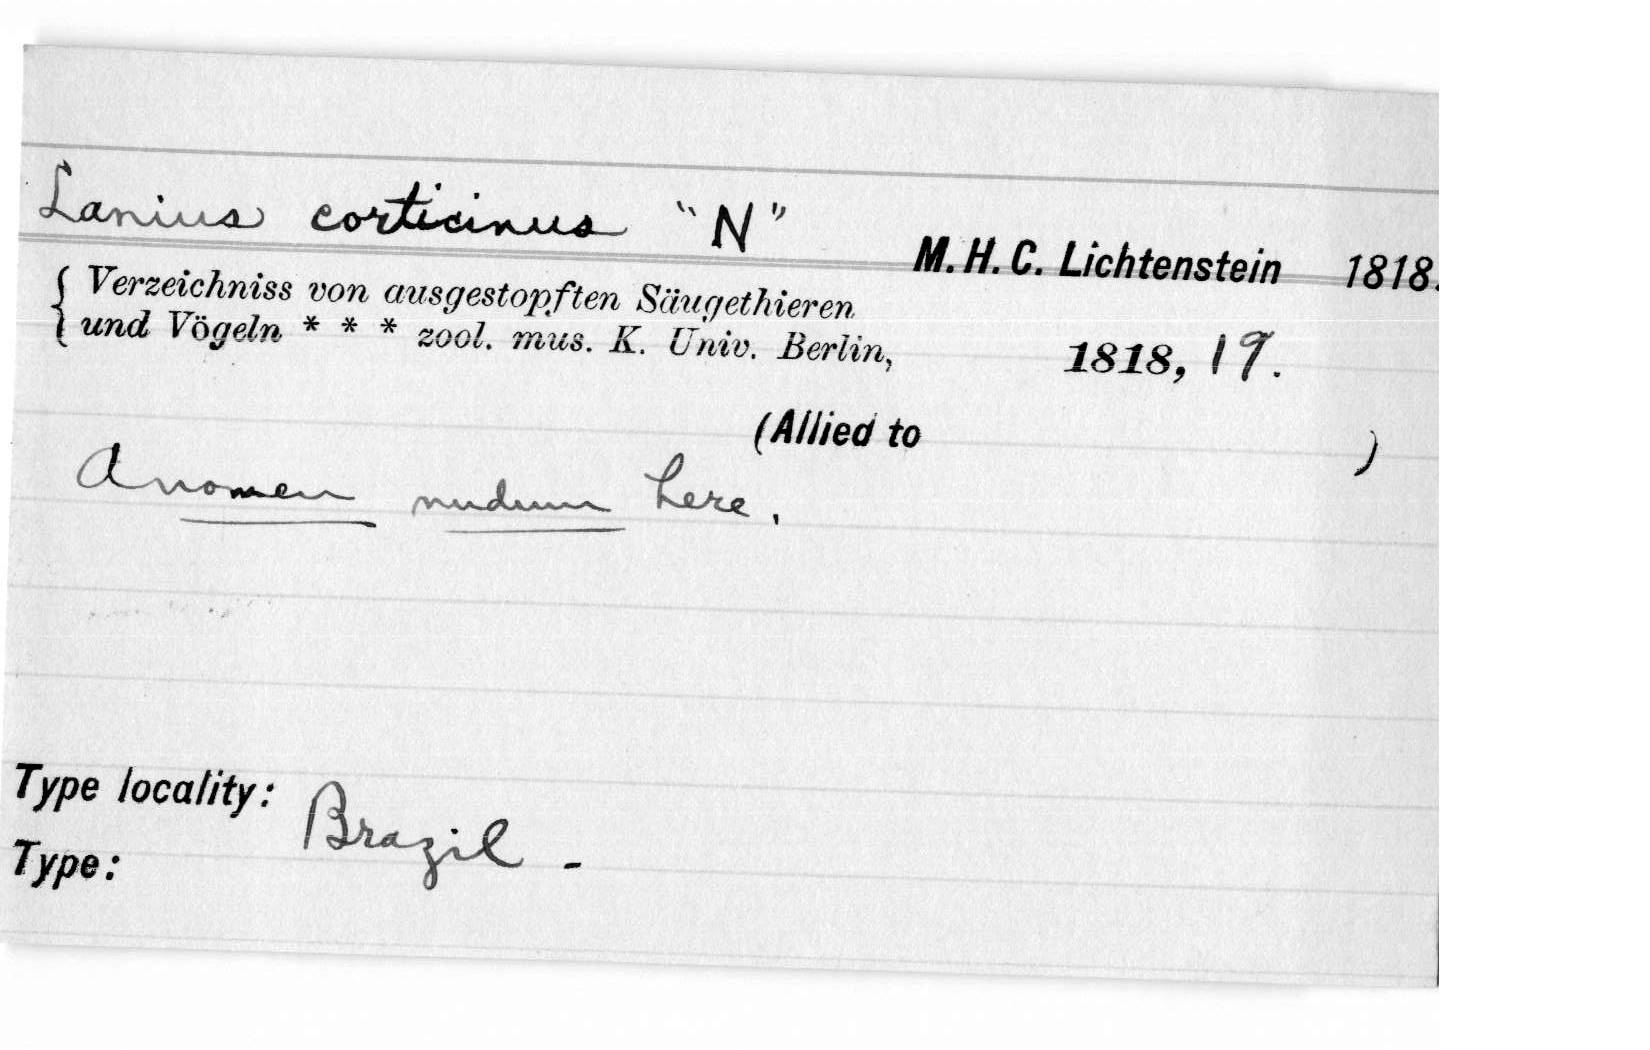 Lanius corticinus "N"
M. H. C. Lichtenstein 1818.
Verzeichniss von ausgestopften Säugethieren
und Vögeln * * * zool. mus. K. Univ. Berlin, 1818, 19.
(Allied to )
A nomen nudum here.
Type locality: Brazil -
Type: